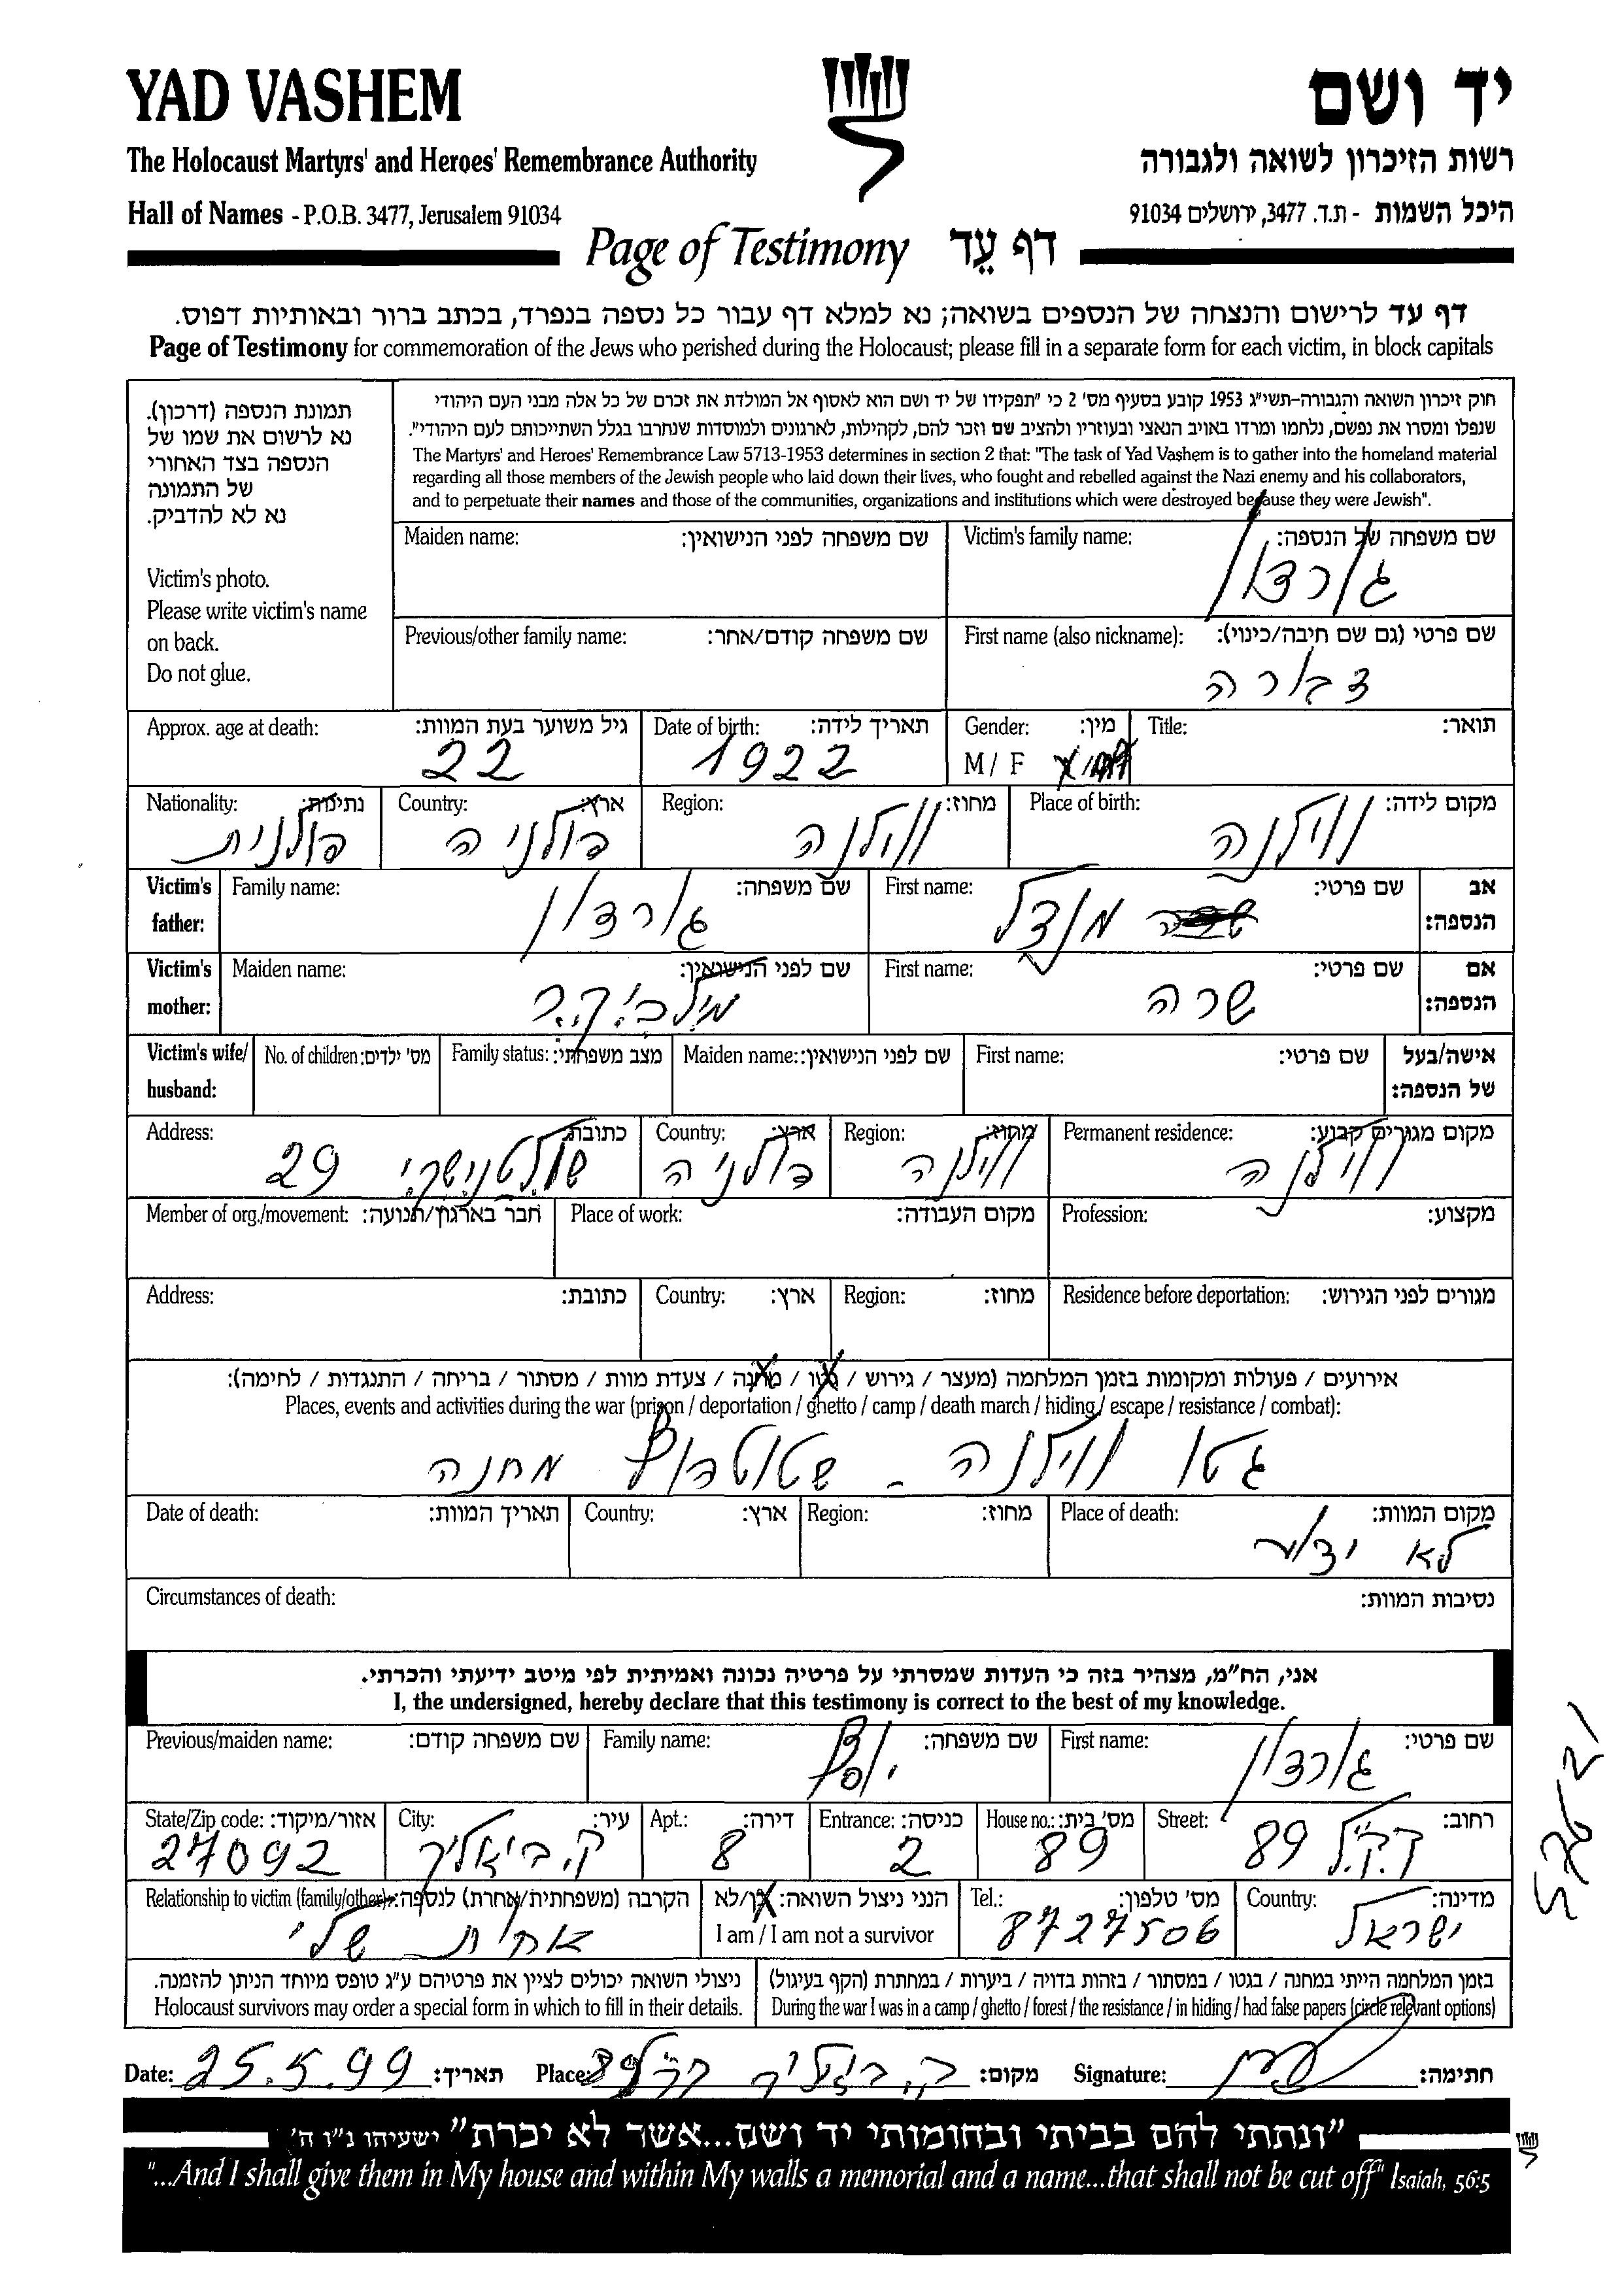 YAD VASHEM
יד ושם
The Holocaust Martyrs' and Heroes' Remembrance Authority
רשות הזיכרון לשואה ולגבורה
Hall of Names - P.O.B. 3477, Jerusalem 91034
היכל השמות - ת.ד. 3477, ירושלים 91034
Page of Testimony דף עֵד
דף עד לרישום והנצחה של הנספים בשואה; נא למלא דף עבור כל נספה בנפרד, בכתב ברור ובאותיות דפוס.
Page of Testimony for commemoration of the Jews who perished during the Holocaust; please fill in a separate form for each victim, in block capitals
תמונת הנספה (דרכון).
נא לרשום את שמו של
הנספה בצד האחורי
של התמונה
נא לא להדביק.
Victim's photo.
Please write victim's name
on back.
Do not glue.
חוק זיכרון השואה והגבורה-תשי"ג 1953 קובע בסעיף מס' 2 כי "תפקידו של יד ושם הוא לאסוף אל המולדת את זכרם של כל אלה מבני העם היהודי
שנפלו ומסרו את נפשם, נלחמו ומרדו באויב הנאצי ובעוזריו ולהציב שם וזכר להם, לקהילות, לארגונים ולמוסדות שנחרבו בגלל השתייכותם לעם היהודי".
The Martyrs' and Heroes' Remembrance Law 5713-1953 determines in section 2 that: "The task of Yad Vashem is to gather into the homeland material
regarding all those members of the Jewish people who laid down their lives, who fought and rebelled against the Nazi enemy and his collaborators,
and to perpetuate their names and those of the communities, organizations and institutions which were destroyed because they were Jewish".
Maiden name: שם משפחה לפני הנישואין:
Victim's family name: שם משפחה של הנספה:
גורדון
Previous/other family name: שם משפחה קודם/אחר:
First name (also nickname): שם פרטי (גם שם חיבה/כינוי):
דבורה
Approx. age at death: גיל משוער בעת המוות:
22
Date of birth: תאריך לידה:
1922
Gender: מין:
M / F
Title: תואר:
Nationality: נתינות:
פולנית
Country: ארץ:
פולניה
Region: מחוז:
ווילנה
Place of birth: מקום לידה:
ווילנה
Victim's father:
Family name: שם משפחה:
גורדון
First name: שם פרטי:
מנדל
אב הנספה:
Victim's mother:
Maiden name: שם לפני הנישואין:
First name: שם פרטי:
שרה
אם הנספה:
Victim's wife/ husband:
No. of children: מס' ילדים:
Family status: מצב משפחתי:
Maiden name: שם לפני הנישואין:
First name: שם פרטי:
אישה/בעל של הנספה:
Address: כתובת:
29
Country: ארץ:
פולניה
Region: מחוז:
ווילנה
Permanent residence: מקום מגורים קבוע:
ווילנה
Member of org./movement: חבר בארגון/תנועה:
Place of work: מקום העבודה:
Profession: מקצוע:
Address: כתובת:
Country: ארץ:
Region: מחוז:
Residence before deportation: מגורים לפני הגירוש:
אירועים / פעולות ומקומות בזמן המלחמה (מעצר / גירוש / גטו / מחנה / צעדת מוות / מסתור / בריחה / התנגדות / לחימה):
Places, events and activities during the war (prison / deportation / ghetto / camp / death march / hiding / escape / resistance / combat):
גטו ווילנה - שטוטהוף מחנה
Date of death: תאריך המוות:
Country: ארץ:
Region: מחוז:
Place of death: מקום המוות:
לא ידוע
Circumstances of death: נסיבות המוות:
אני, הח"מ, מצהיר בזה כי העדות שמסרתי על פרטיה נכונה ואמיתית לפי מיטב ידיעתי והכרתי.
I, the undersigned, hereby declare that this testimony is correct to the best of my knowledge.
Previous/maiden name: שם משפחה קודם:
Family name: שם משפחה:
יוסף
First name: שם פרטי:
גורדון
State/Zip code: אזור/מיקוד:
27092
City: עיר:
ק. ביאליק
Apt.: דירה:
8
Entrance: כניסה:
2
House no.: מס' בית:
89
Street: רחוב:
89
Relationship to victim (family/other): הקרבה (משפחתית/אחרת) לנספה:
אחות שלי
הנני ניצול השואה: כן/לא
I am / I am not a survivor
Tel.: מס' טלפון:
8727506
Country: מדינה:
ישראל
ניצולי השואה יכולים לציין את פרטיהם ע"ג טופס מיוחד הניתן להזמנה.
Holocaust survivors may order a special form in which to fill in their details.
בזמן המלחמה הייתי במחנה / בגטו / במסתור / בזהות בדויה / ביערות / במחתרת (הקף בעיגול)
During the war I was in a camp / ghetto / forest / the resistance / in hiding / had false papers (circle relevant options)
Date: 25.5.99 תאריך:
Place: ק. ביאליק מקום:
Signature: חתימה:
"ונתתי להם בביתי ובחומותי יד ושם...אשר לא יכרת" ישעיהו נ"ו ה'
"...And I shall give them in My house and within My walls a memorial and a name...that shall not be cut off" Isaiah, 56:5